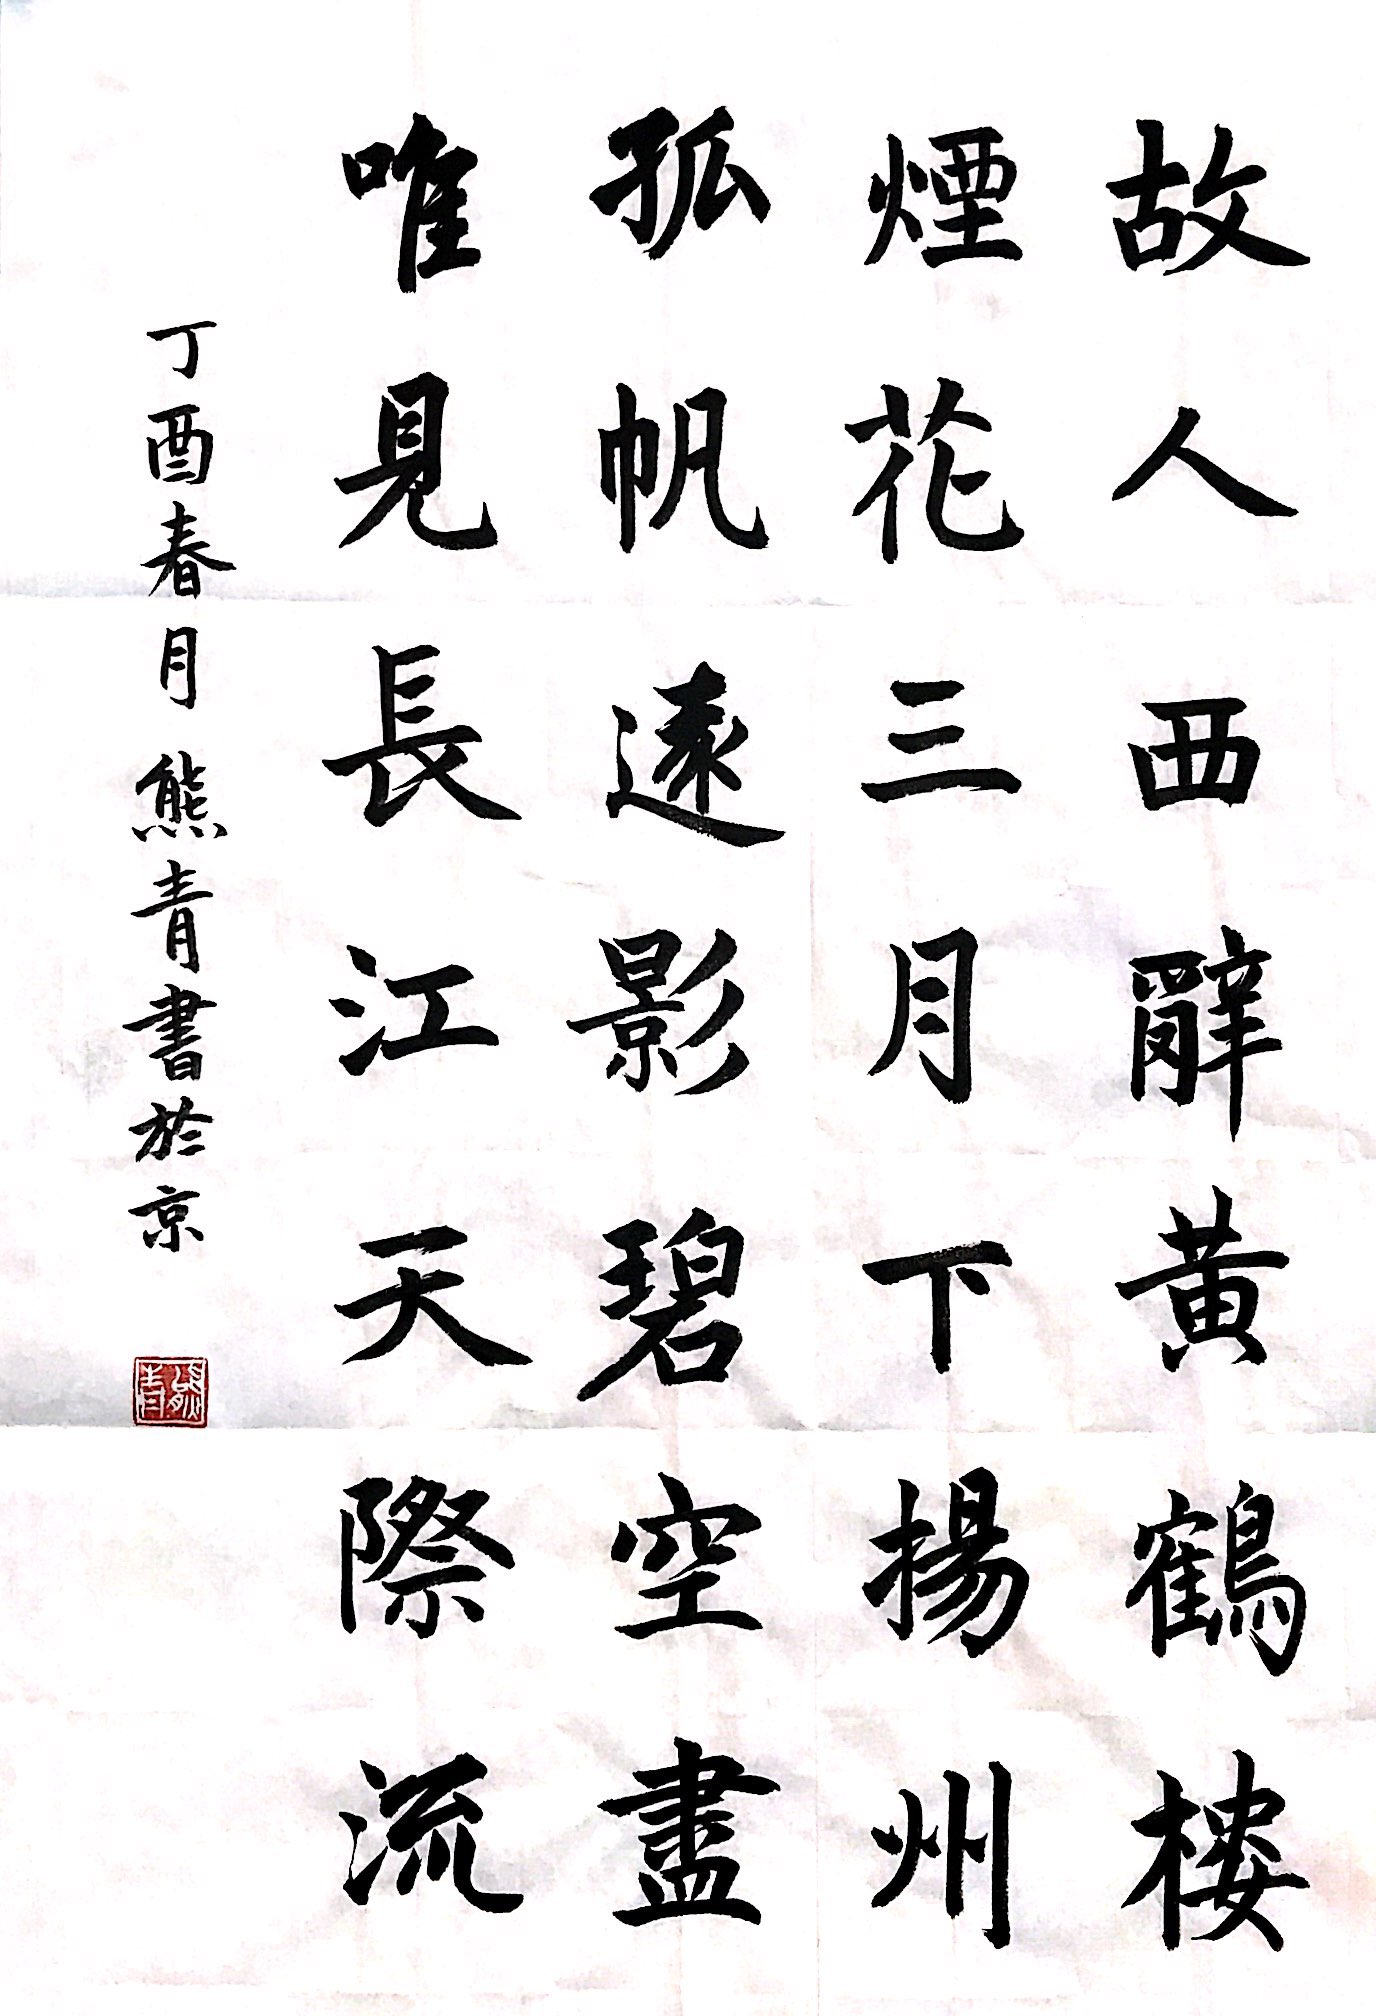 故人西辭黃鶴楼
煙花三月下揚州
孤帆遠影碧空盡
唯見長江天際流
丁酉春月熊青書於京
熊青